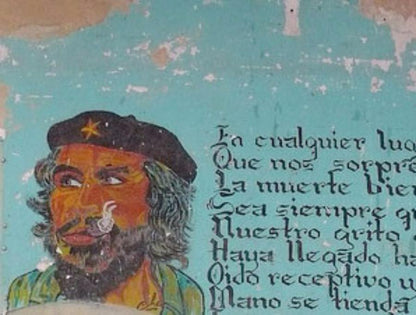 En cualquier luga
Que nos sorpre
La muerte bien
Sea siempre q
Nuestro grito
Haya llegado ha
Oido receptivo u
Mano se tienda